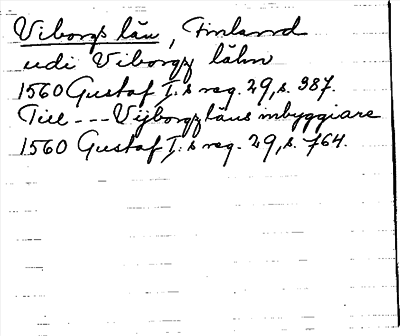 Viborgs län, Finland
udi Viborgz lähn
1560 Gustaf I:s reg. 29, s. 387.
Till --- Vijborgz läns inbyggiare
1560 Gustaf I:s reg. 29, s. 764.